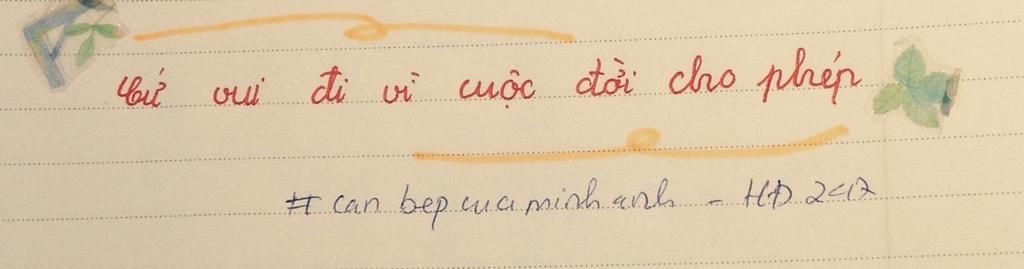 Cứ vui đi vì cuộc đời cho phép
# can bep cua minh anh - HĐ 2417